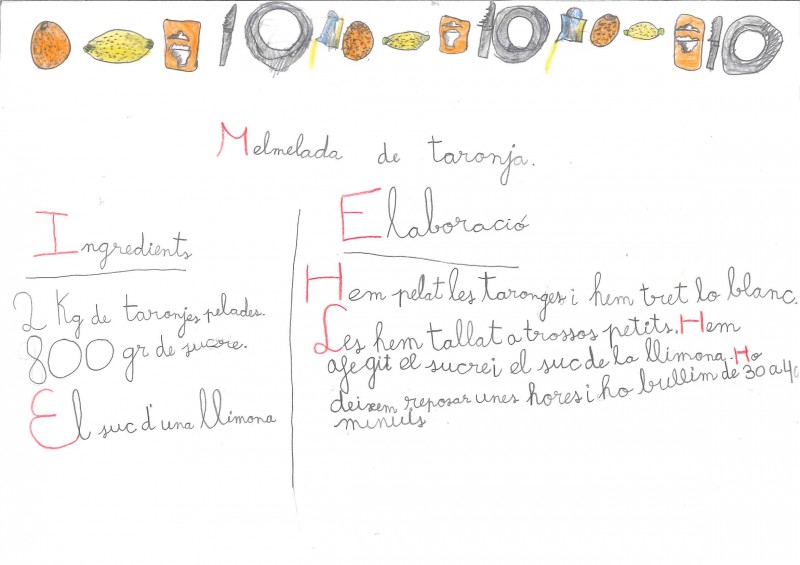 Melmelada de taronja.
Ingredients
2 Kg de taronjes pelades.
800 gr de sucre.
El suc d'una llimona
Elaboració
Hem pelat les taronges i hem tret lo blanc.
Les hem tallat a trossos petits. Hem
afegit el sucre i el suc de la llimona. Ho
deixem reposar unes hores i ho bullim de 30 a 40
minuts